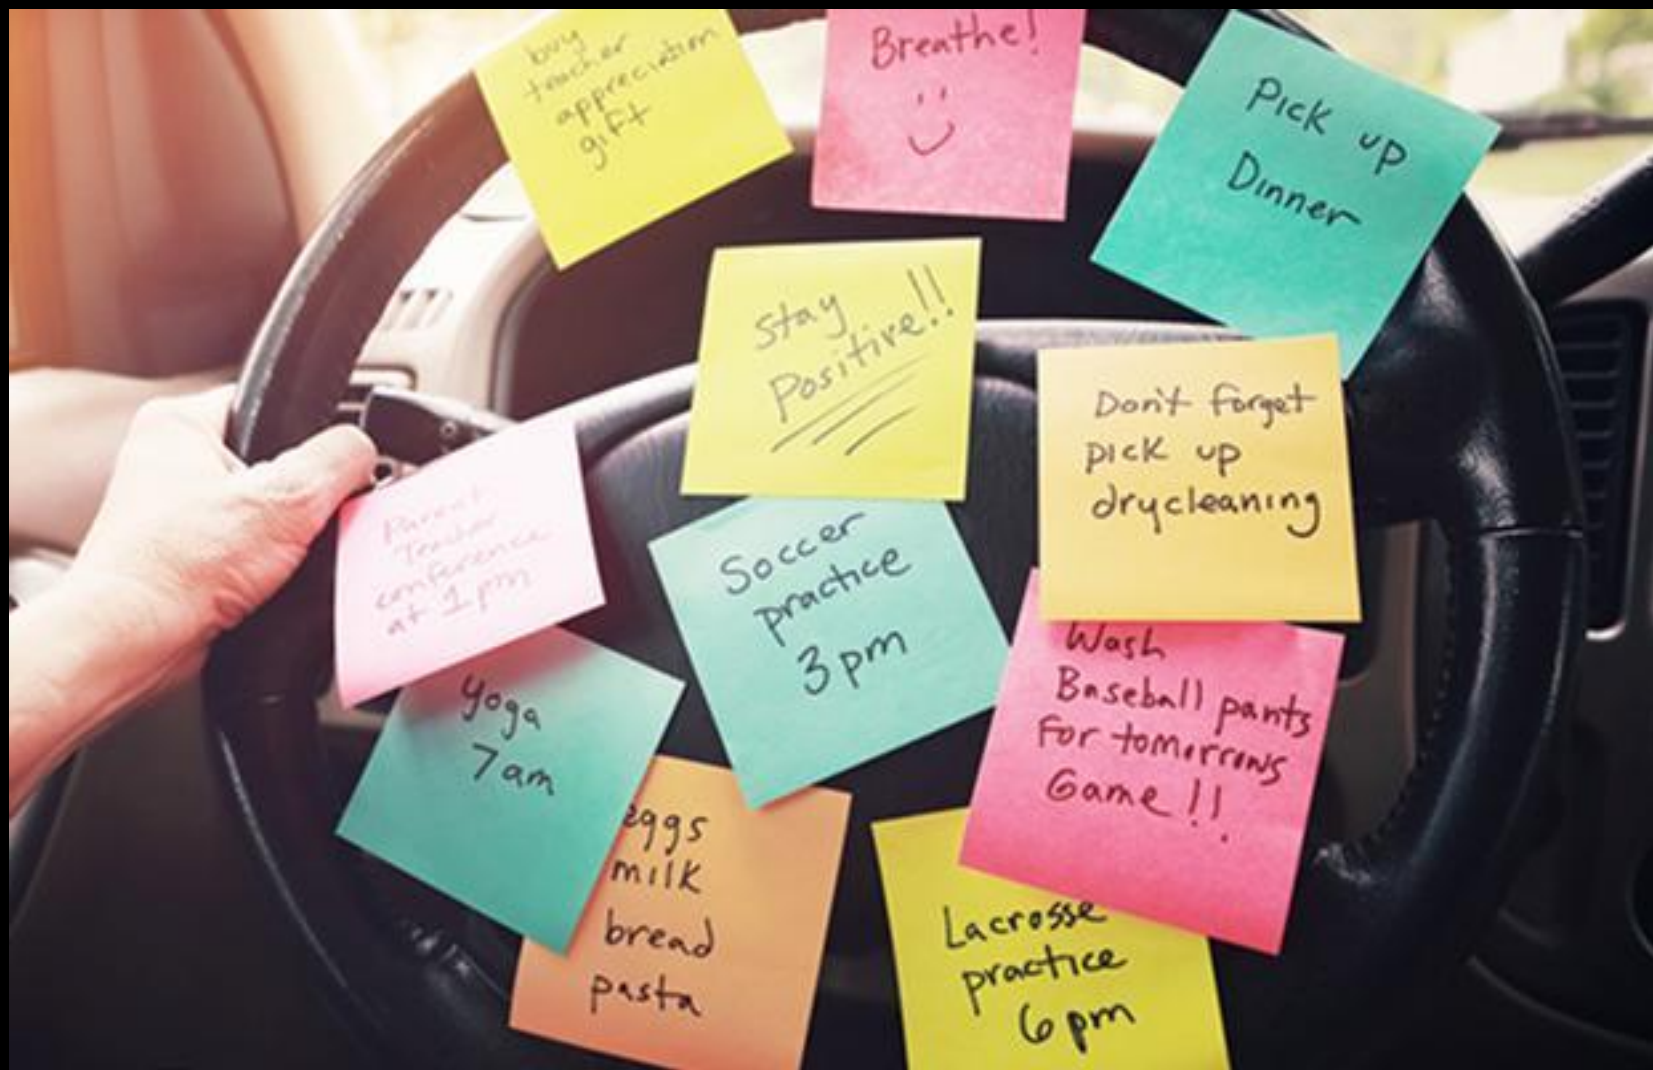 buy
teacher
appreciation
gift
Breathe!
Pick up
Dinner
Stay
Positive!!
Don't forget
pick up
drycleaning
Parent
Teacher
conference
at 1pm
Soccer
practice
3pm
Wash
Baseball pants
For tomorrows
Game!!
yoga
7am
eggs
milk
bread
pasta
Lacrosse
practice
6pm